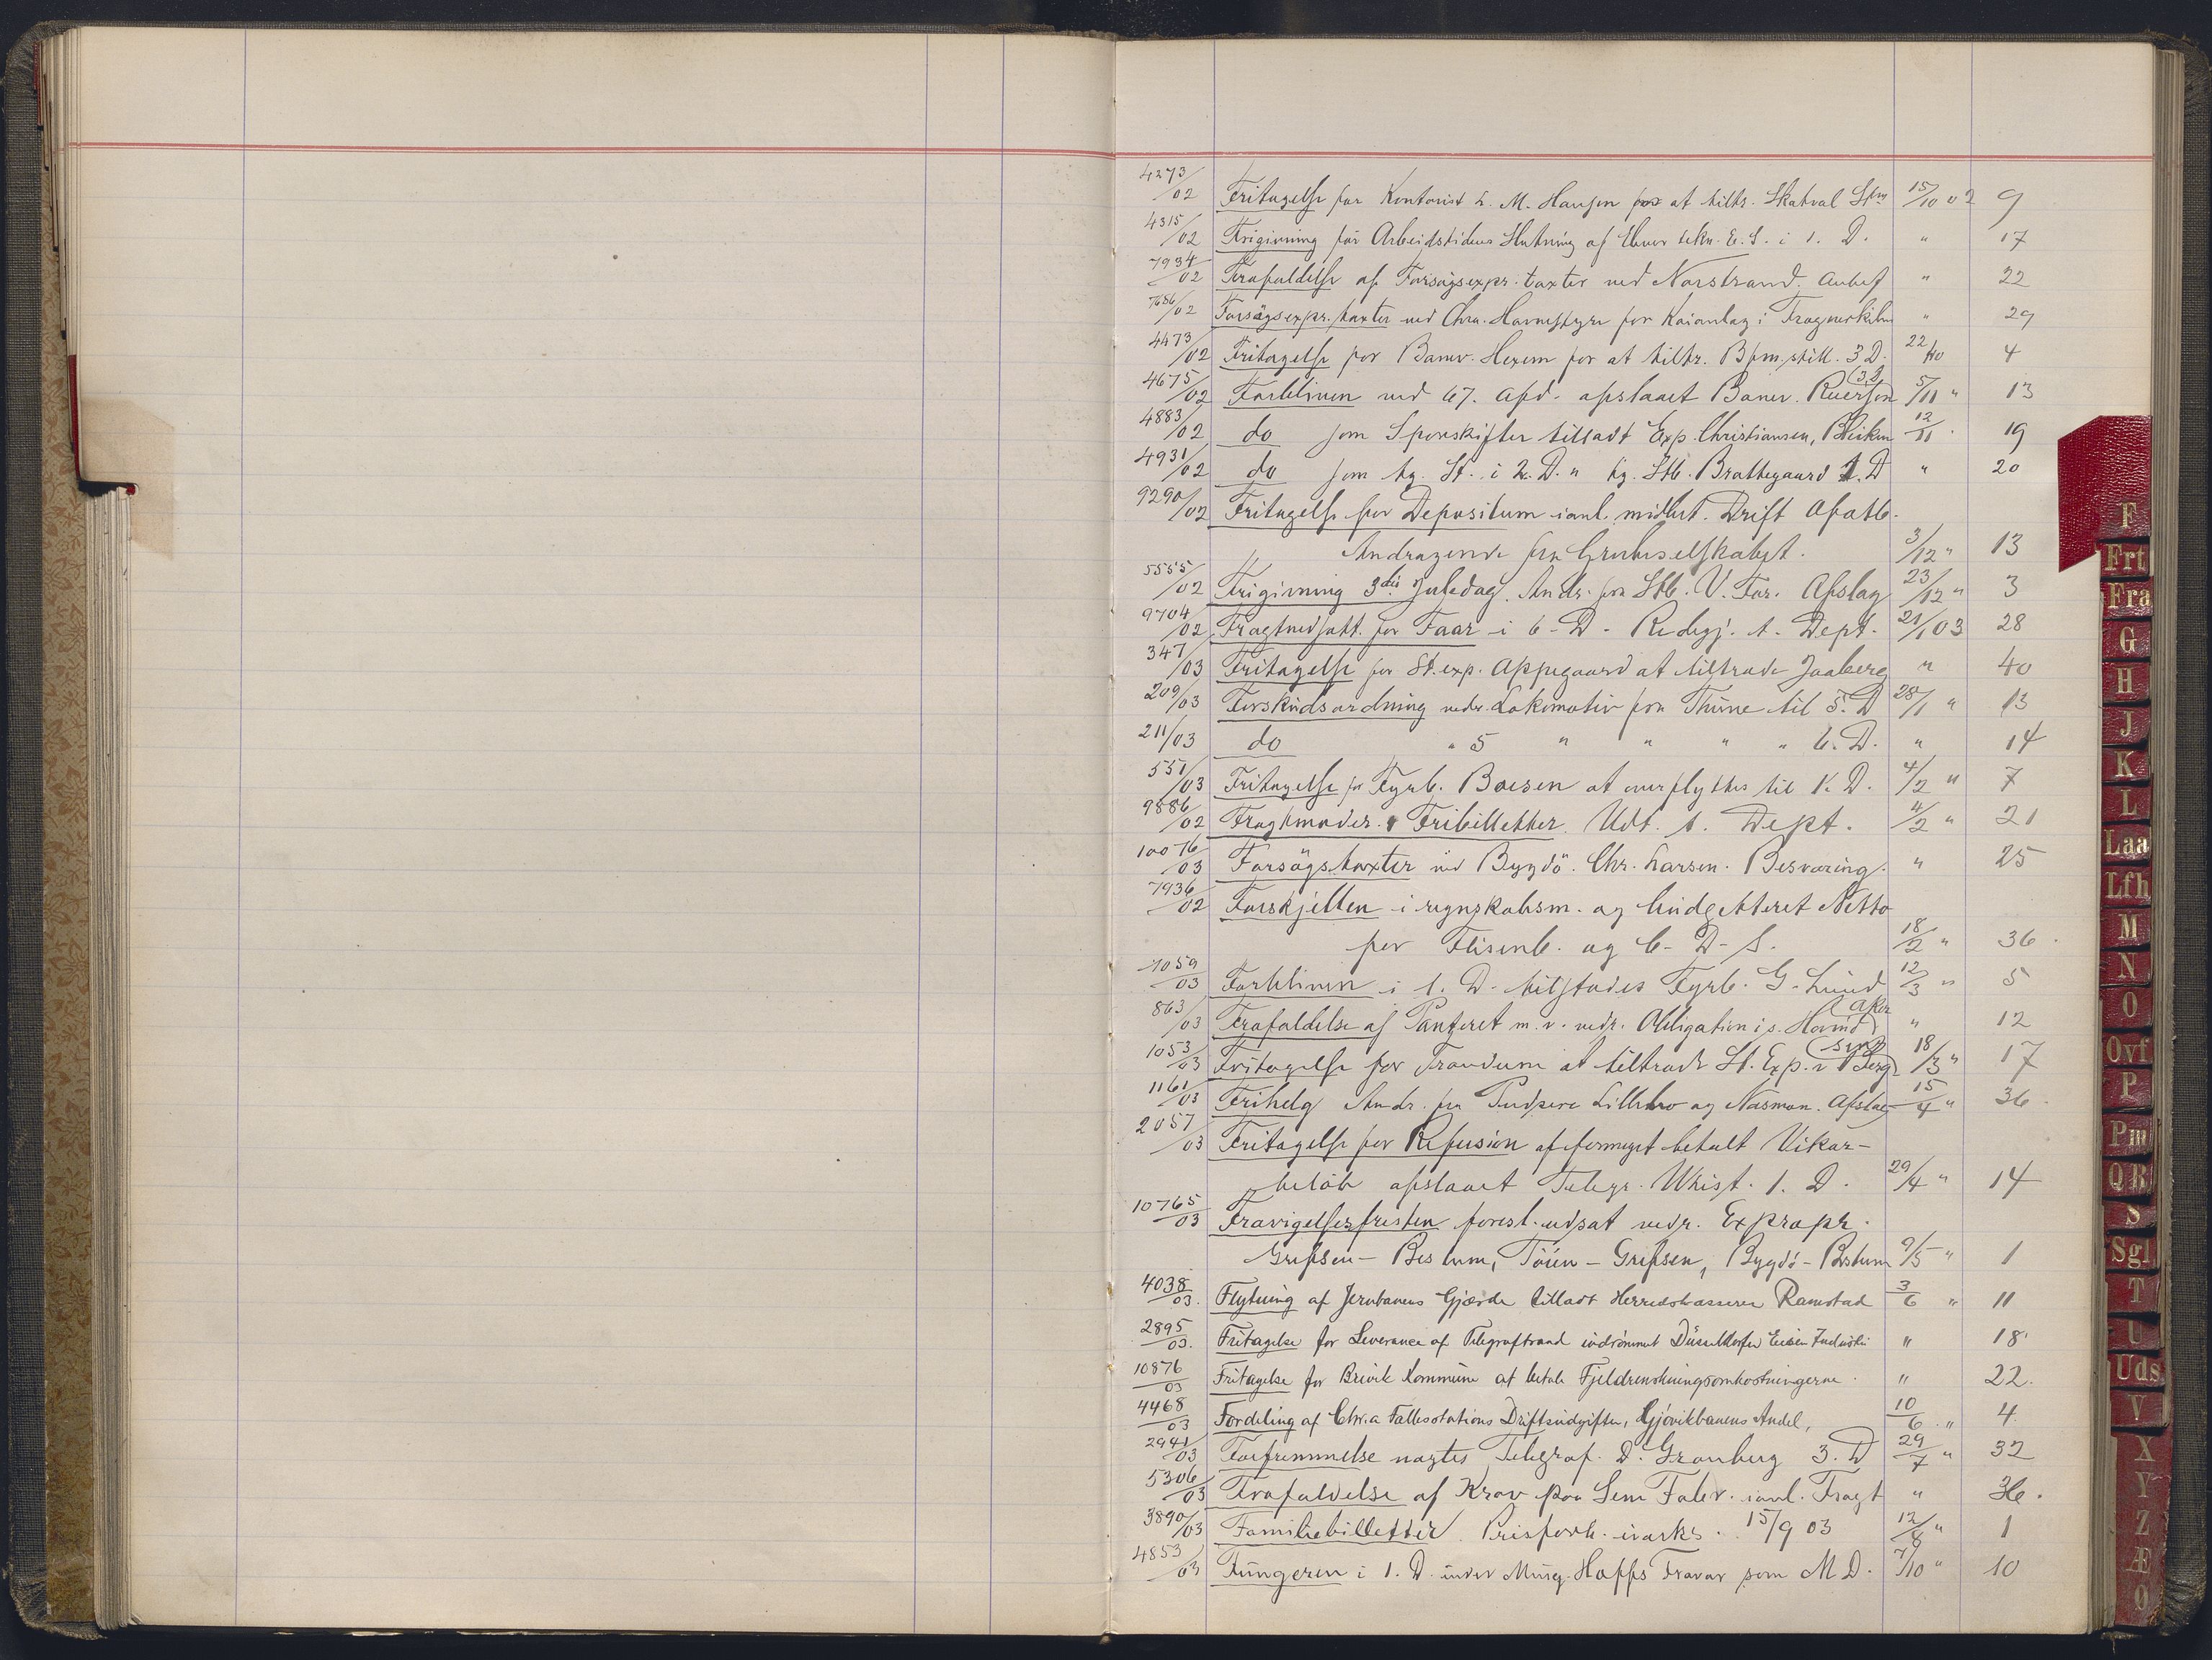 4273/02 Fritagelse for Kontorist L. M. Hansen for at tiltr. Skatval Stn 15/10 02 9
4315/02 Frigivning før Arbeidstidens Slutning af i 1. D. " 17
7934/02 Frafaldelse af Forsøgsexpr. taxter ved Norstrand. Anbef " 22
7686/02 Forsøgsexpr. taxter ved Chra. Havnestyre for Kaianlæg i Frognerkilen " 29
4473/02 Fritagelse for Banev. Hexem for at tiltr. Bfm. still. 3 D. 22/10 4
4675/02 Forbliven ved 67. Afd. afslaaet Banev. Ruersen (3 D) 5/11 " 13
4883/02 do som Sporskifter tilladt Exp. Christiansen, 12/11 19
4931/02 do som tg. St. i 2. D. " tg. Stb. Brattegaard 1. D " 20
9290/02 Fritagelse for Depositum ianl. midlert. Drift Ofotb.
Andragende fra Grubeselskabet. 3/12 " 13
5555/02 Frigivning 3die Juledag. Andr. fra Stb. V. For. Afslag 23/12 " 3
9704/02 Fragtnedsatt. for Faar i 6. D. Redegj. t. Dept. 21/1 03 28
347/03 Fritagelse for St. exp. Oppegaard at tiltræde Jaaberg " 40
209/03 Forskudsordning vedr. Lokomotiv fra Thune til 5. D 28/1 " 13
211/03 do " 5 " " " " 6. D. " 14
551/03 Fritagelse for Fyrb. Boesen at overflyttes til K. D. 4/2 " 7
9886/02 Fragtmoder. & Fribilletter. Udt. t. Dept. 4/2 " 21
10076/03 Forsøgstaxter ved Bygdö. Chr. Larsen. Besværing. " 25
7936/02 Forskjellen i regnskabsm. og budgetteret Netto
for Flisenb. og 6. D. S. 18/2 " 36.
1059/03 Forbliven i 1. D. tilstedes Fyrb. G. Lund 12/3 " 5
863/03 Frafaldelse af Panteret m. v. vedr. Obligation i s. Hovind (Aker) " 12
1053/03 Fritagelse for Trandum at tiltræde St. Exp. i Berg 18/3 " 17
1161/03 Frihelg Andr. fra Pudsere Lillebro og Næsman. Afslag 15/4 " 36.
2057/03 Fritagelse for Refusion af formeget betalt Vikar-
beløb afslaaet Telegr. Whist. 1. D. 29/4 " 14
10765/03 Fravigelsesfristen forest. udsat vedr. Expropr.
Grefsen - Bestum, Töien - Grefsen, Bygdö - Bestum 9/5 " 1
4038/03. Flytning af Jernbanens Gjærde tilladt Herredskasserer Ramstad 3/6 " 11
2895/03. Fritagelse for Leverance af Telegraftraad indrömmet Düsseldorfer Eisen Industri " 18.
10876/03 Fritagelse for Brevik Kommune at betale Fjeldrenskningsomkostningerne. " 22.
4468/03 Fordeling af Chr.a Fællesstations Driftsudgifter, Gjövikbanens Andel, 10/6 " 4.
2941/03 Forfremmelse nægtes Telegraf. D. Gronberg 3. D 29/7 " 32
5306/03 Frafaldelse af Krav paa Sem Fabr. ianl. Fragt " 36.
3890/03 Familiebilletter. Prisforh. iværks. 15/9 03 12/8 " 1
4853/03 Fungeren i 1. D. under Hoffs Fravær som M D. 7/10 " 10
F
Frt
Fra
G
H
J
K
L
Laa
Lfh
M
N
O
Ovf
P
Pm
Q R
S
Sgl
T
U
Uds
V
X
Y
Z
Æ
Ø